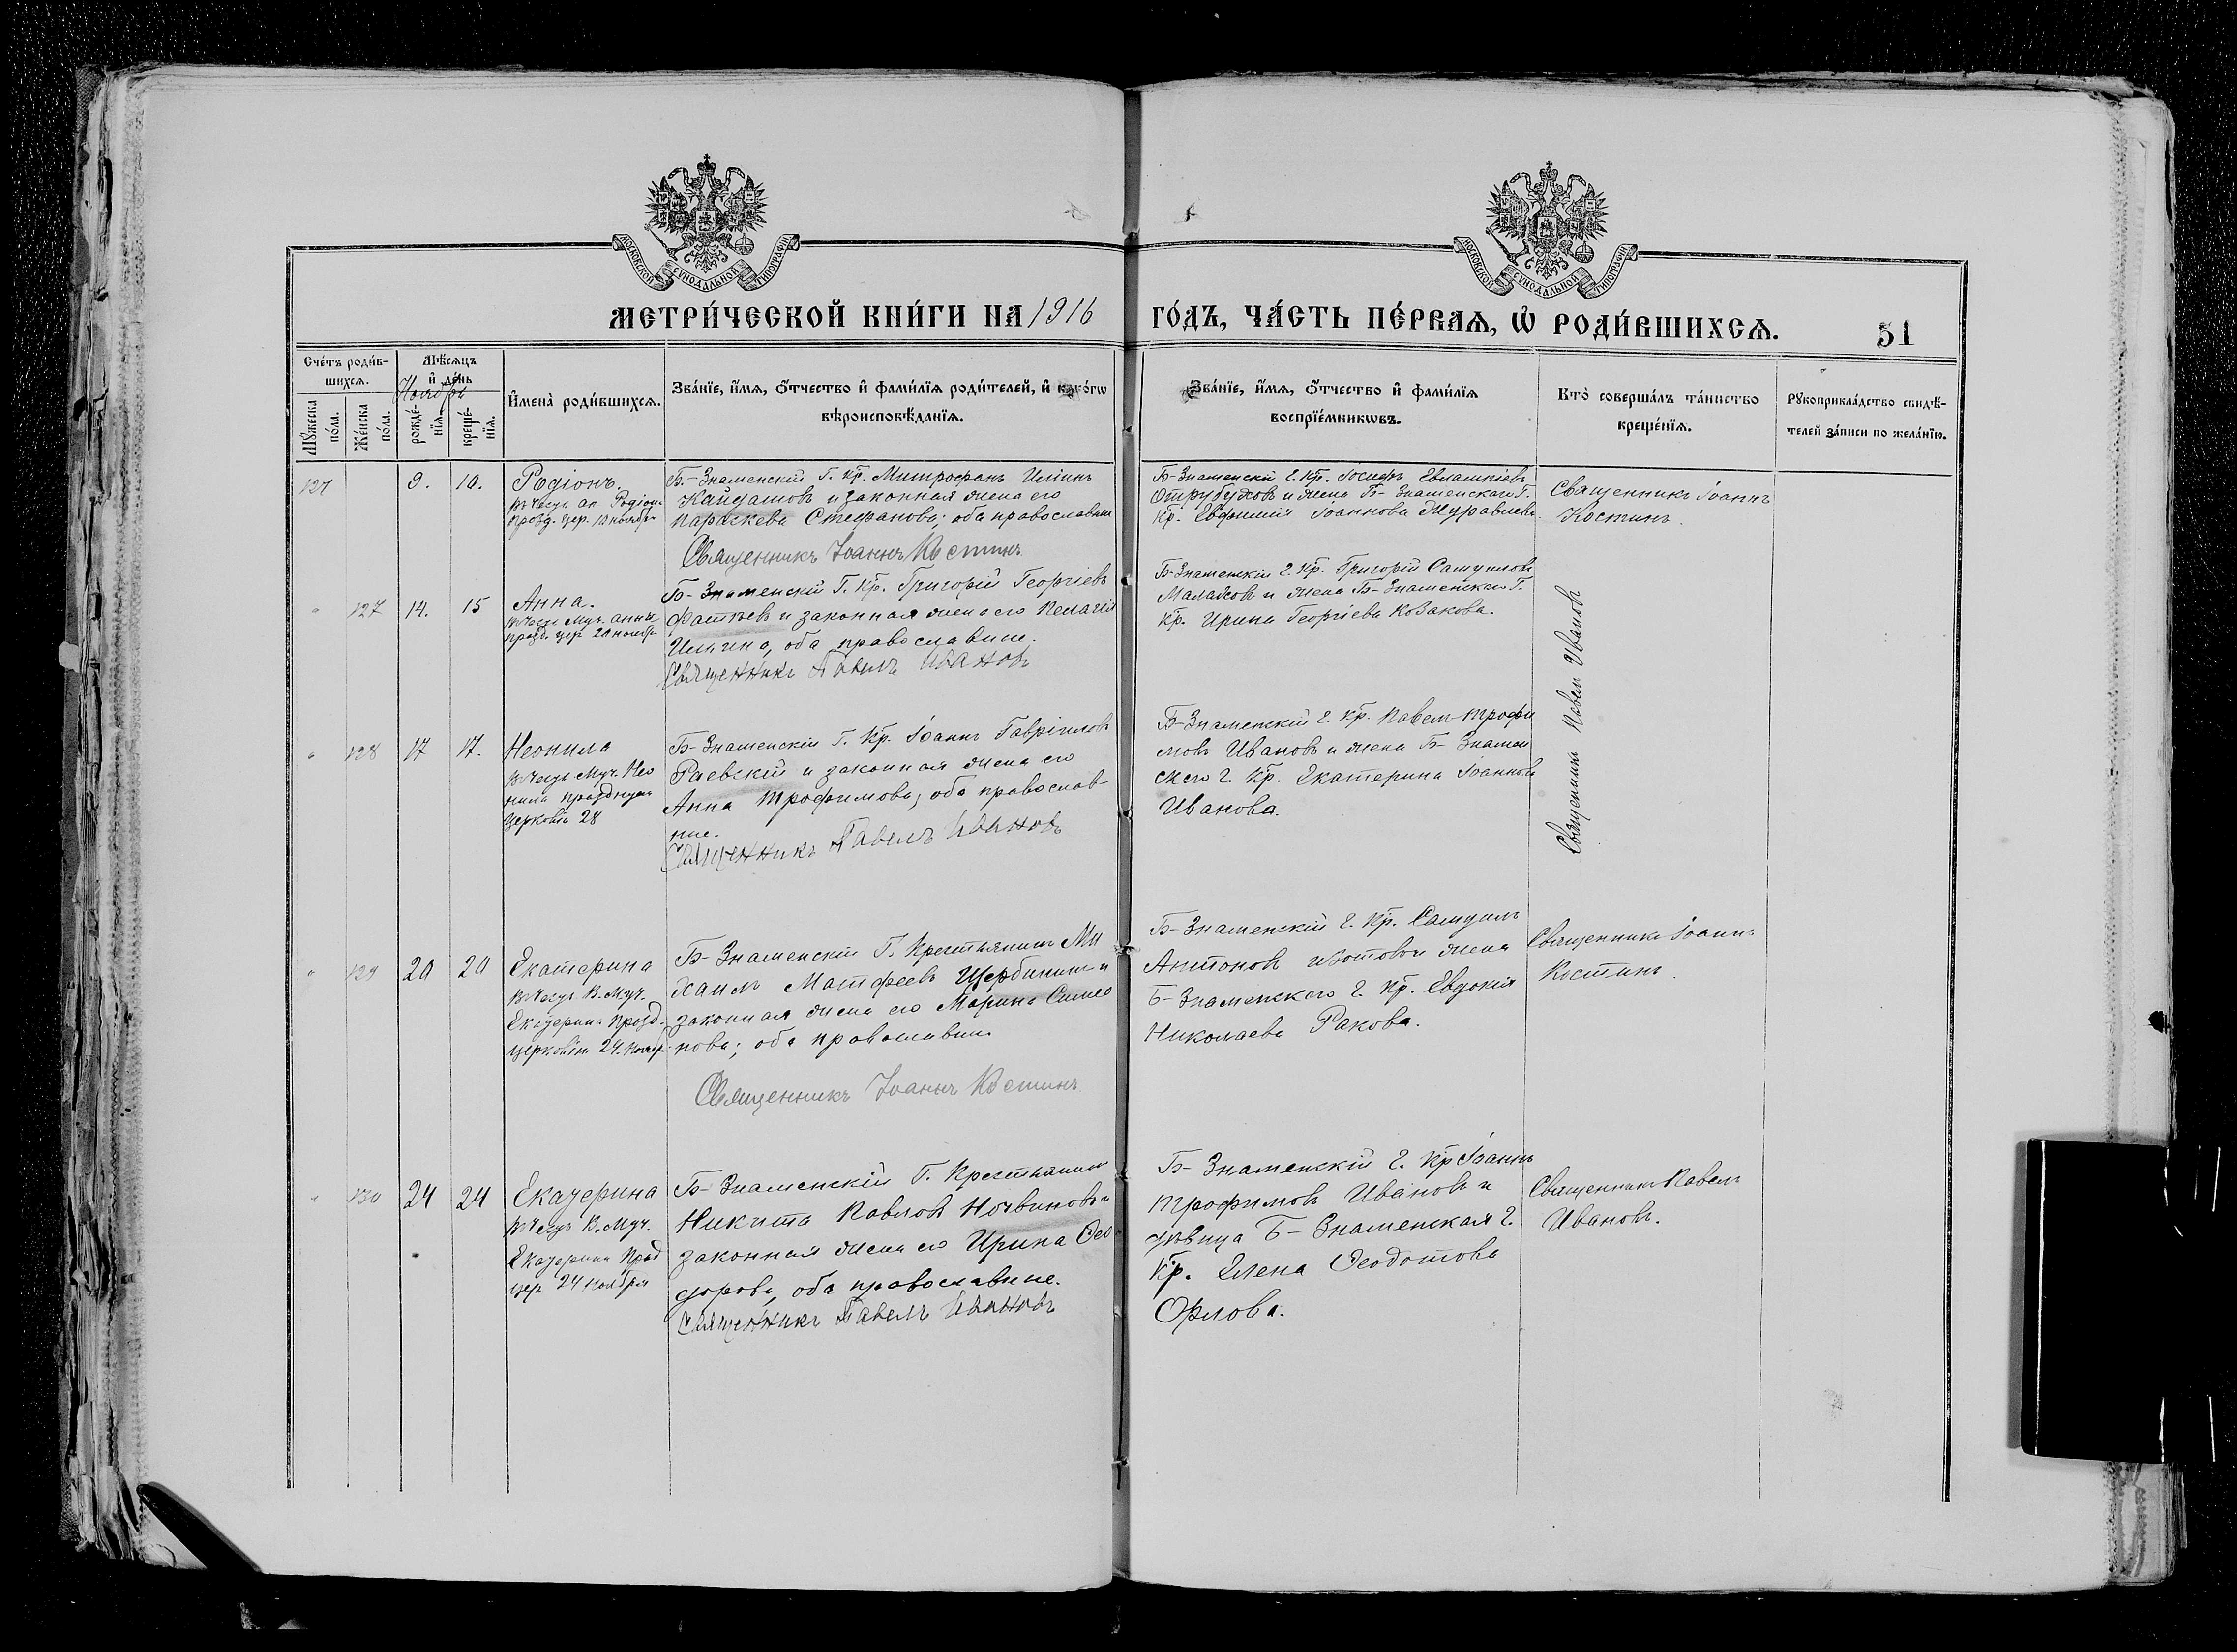 МОСКОВСКОЙ СѴНОДАЛЬНОЙ ТИПОГРАФІИ
МОСКОВСКОЙ СѴНОДАЛЬНОЙ ТИПОГРАФІИ
МЕТРИ́ЧЕСКОЙ КНИ́ГИ НА 1916
ГО́ДЪ, ЧА́СТЬ ПЕ́РВАЯ, Ѡ҆ РОДИ́ВШИХСЯ.
51
Сче́тъ роди́в-
шихся.
Мѣ́сяцъ
и҆ де́нь
Ноябрь
Му́жеска
по́ла.
Же́нска
по́ла.
рожде́-
нїя.
креще́-
нїя.
И҆мена̀ роди́вшихся.
Зва́нїе, и҆́мя, ѻ҆́тчество и҆ фами́лїя роди́телей, и҆ како́гѡ
вѣроисповѣ́данїя.
Зва́нїе, и҆́мя, ѻ҆́тчество и҆ фами́лїя
воспрїе́мникѡвъ.
Кто̀ соверша́лъ та́инство
креще́нїя.
Рукоприкла́дство свидѣ́-
телей за́писи по жела́нїю.
127
9.
10.
Родіонъ.
въ честь ап. Родіона
празд. цер. 10 ноября
Б.-Знаменскій Г. Кр. Митрофанъ Илiинъ
Кайдашов и законная жена его
Параскева Стефанова; оба православные
Священникъ Іоаннъ Костинъ
Б-Знаменскій Г. Кр. Іосифъ Евлампіевъ
Отрубухов и жена Б-Знаменскаго Г.
Кр. Евфимія Іоаннова Журавлева
Священникъ Іоаннъ
Костинъ.
127
14.
15
Анна.
въ честь Муч. Анны
празд. цер. 20 ноября
Б-Знаменскій Г. Кр. Григорій Георгіевъ
Фатѣев и законная жена его Пелагія
Ильина, оба православные.
Священникъ Павелъ Ивановъ
Б-Знаменскій Г. Кр. Григорій Самуилов
жена Б-Знаменскаго Г.
Кр. Ирина Георгіева Козакова.
Священникъ Павел Иванов
128
17
17.
Неонила
въ честь Муч. Нео
нила празднуем
церковію 28
Б-Знаменскій Г. Кр. Іоаннъ Гавріиловъ
Раевскій и законная жена его
Анна Трофимова, оба православ-
ные.
Священникъ Павелъ Ивановъ
Б-Знаменскій Г. Кр. Павел Трофи
мовъ Ивановъ и жена Б-Знамен
скаго Г. Кр. Екатерина Іоаннова
Иванова.
129
20
20
Екатерина
въ честь В. Муч.
Екатерина празд.
церковію 24 ноября
Б-Знаменскій Г. Крестьянинъ Ми
хаилъ Матфеевъ Щербининъ и
законная жена его Марина Симео
нова; оба православные
Священникъ Іоаннъ Костинъ
Б-Знаменскій Г. Кр. Самуилъ
Антонов Изотов и жена
Б-Знаменскаго Г. Кр. Евдокія
Николаева Ракова.
Священникъ Іоаннъ
Костинъ.
130
24
24
Екатерина
въ честь В. Муч.
Екатерина празд
цер 24 ноября
Б-Знаменскій Г. Крестьянинъ
Никита Павлов Ночвинов и
законная жена его Ирина Ѳео
дорова, оба православные.
Священникъ Павелъ Ивановъ
Б-Знаменскій Г. Кр Іоаннъ
Трофимовъ Ивановъ и
дѣвица Б-Знаменская Г.
Кр. Елена Ѳеодотова
Орлова.
Священникъ Павелъ
Ивановъ.